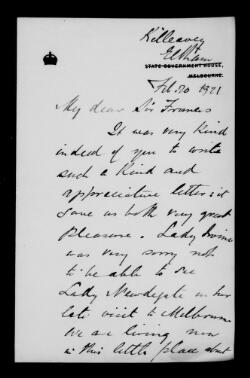 Killeavey
Eltham
STATE GOVERNMENT HOUSE,
MELBOURNE.
Feb. 20 1921
My dear Sir Francis
It was very kind
indeed of you to write
such a kind and
appreciative letter it
gave us both very great
pleasure. Lady Irvine
was very sorry not
to be able to see
Lady Newdegate on her
late visit to Melbourne
We are living now
in this little place about